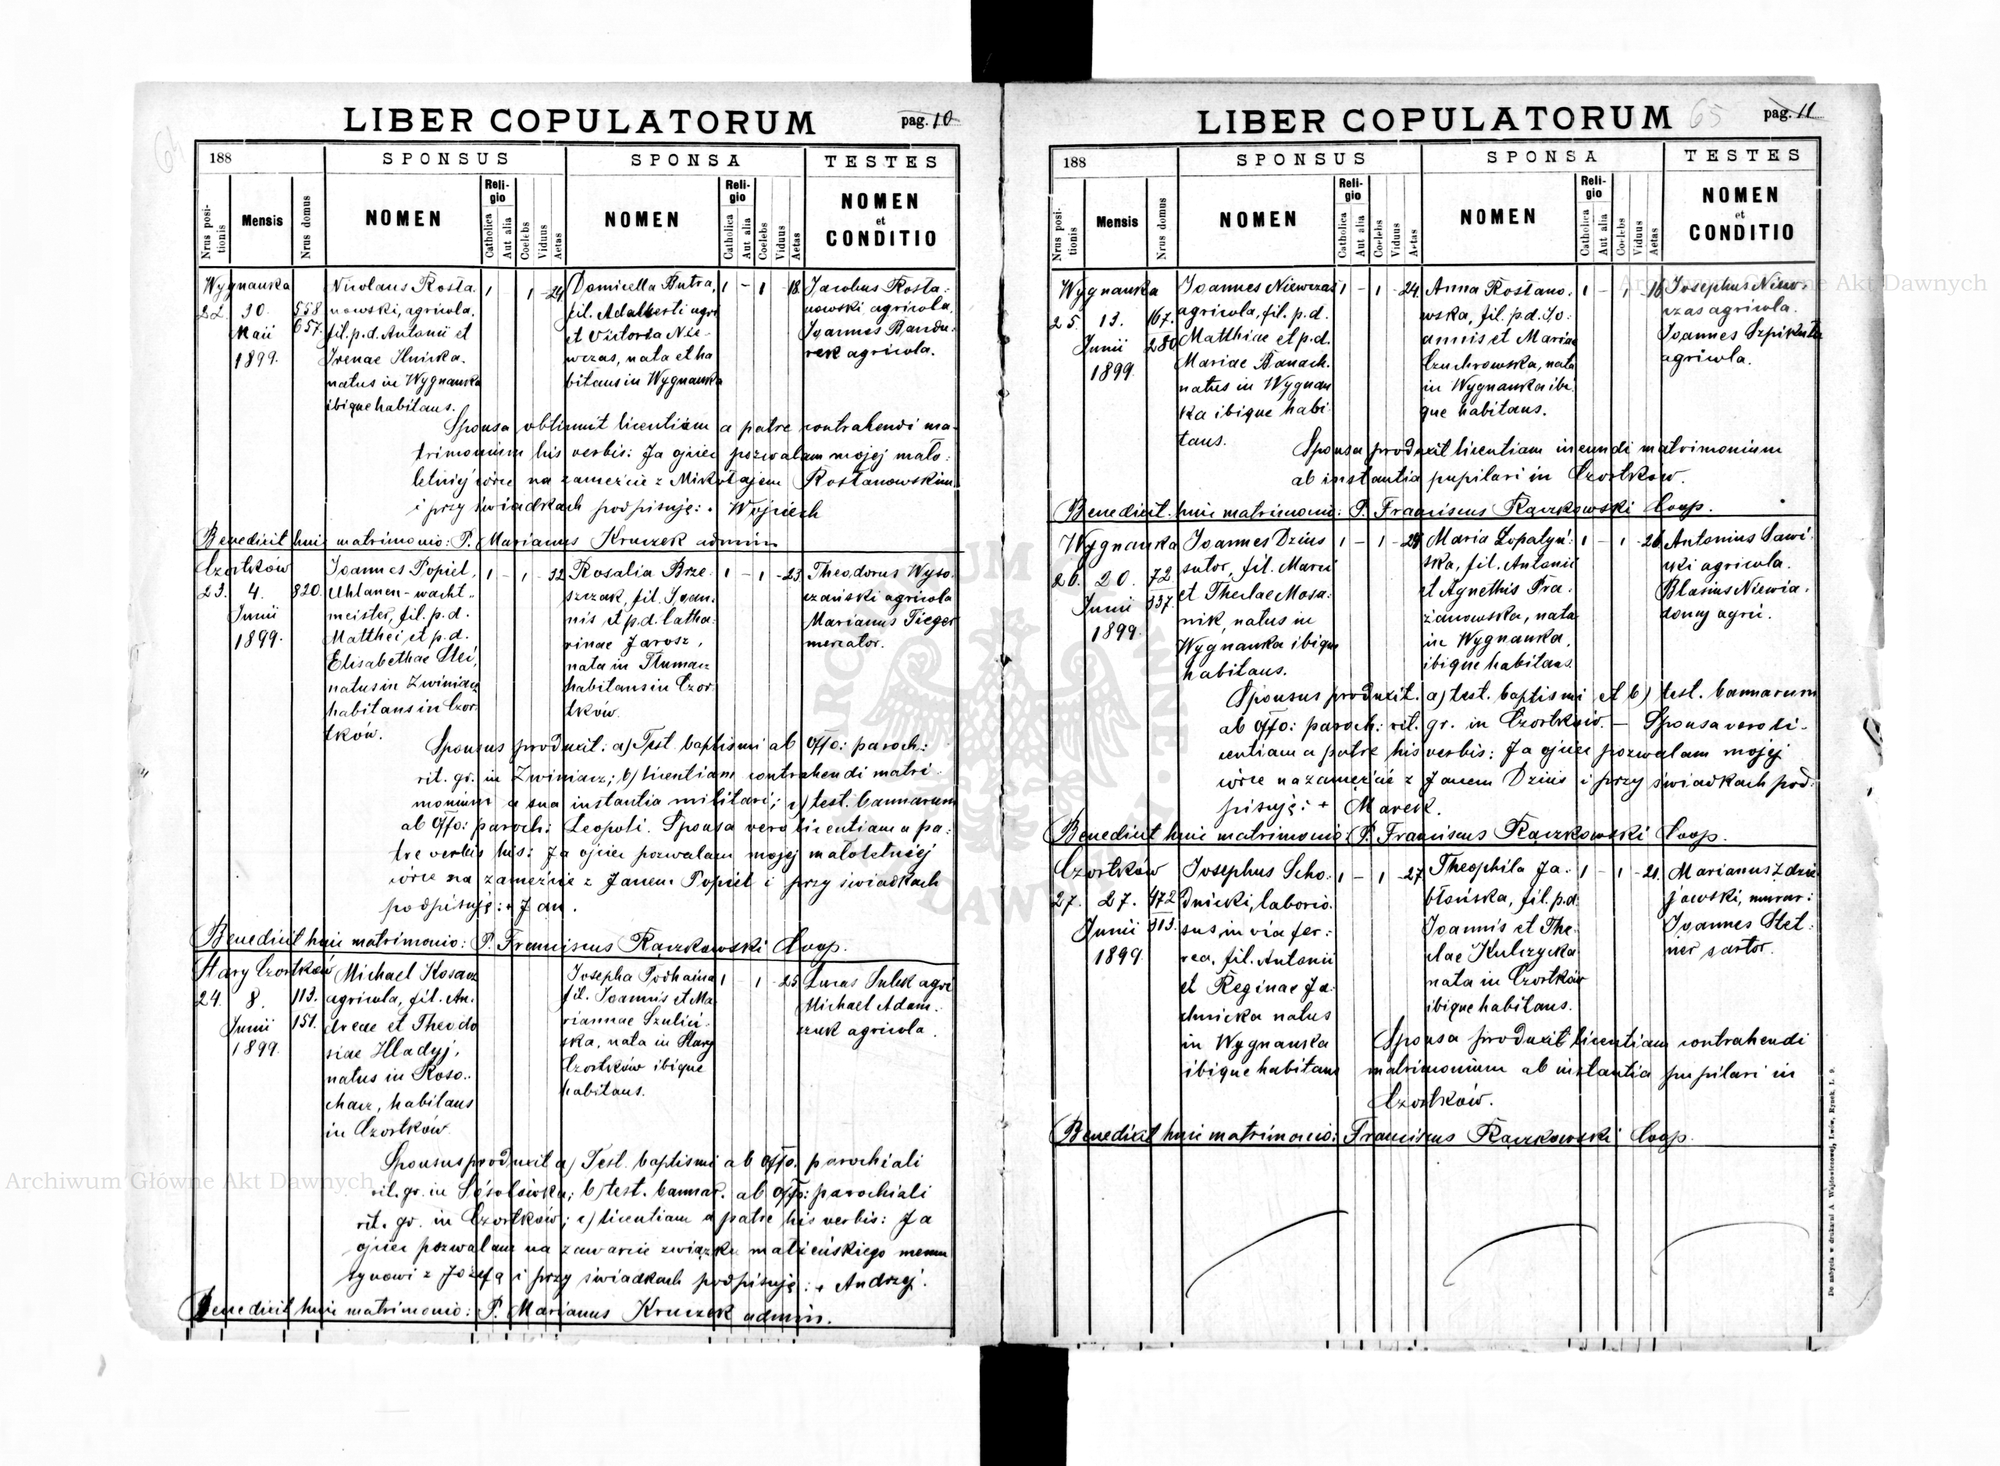 LIBER COPULATORUM
pag. 10
64
188
SPONSUS
SPONSA
TESTES
Nrus posi-
tionis
Mensis
Nrus domus
NOMEN
Reli-
gio
Catholica
Aut alia
Coelebs
Viduus
Aetas
NOMEN
Reli-
gio
Catholica
Aut alia
Coelebs
Viduus
Aetas
NOMEN
et
CONDITIO
Wygnanka
22. 30.
Maii
1899.
558
657.
Nicolaus Rosta
nowski, agricola,
fil. p.d. Antonii et
Irenae Ilnicka.
natus in Wygnanka
ibique habitans.
1 1 - 24
Domicella Butra,
fil. Adalberti agri
et Victoria Nie-
wczas, nata et ha
bitans in Wygnanka
1 - 1 - 18.
Jacobus Rosta:
nowski agricola,
Joannes Bandu:
rek agricola.
Sponsa obtinuit licentiam a patre contrahendi ma-
trimonium his verbis: Ja ojciec pozwalam mojej mało:
letniej córce na zamęźcie z Mikołajem Rostanowskim
i przy świadkach podpisuję: + Wojciech
Benedixit huic matrimonio: P. Marianus Kruczek admin
Czortków
23. 4.
Junii
1899.
820.
Joannes Popiel,
Uhlanen-wacht-
meister, fil. p.d.
Matthei et p.d.
Elisabethae Stei,
natus in Zwiniacz
habitans in Czor
tków.
1 - 1 - 32
Rosalia Brze
szczak, fil. Joan.
nis et p.d. Catha
rinae Jarosz,
nata in Tłumacz
habitans in Czor
tków.
1 - 1 - 23
Theodorus Wyso
czański agricola
Marianus Tieger
mercator.
Sponsus produxit: a) Test. baptismi ab offo: paroch:
rit. gr. in Zwiniacz; b) licentiam contrahendi matri
monium a sua instantia militari; c) test. bannarum
ab offo: paroch: Leopoli. Sponsa vero licentiam a pa:
tre verbis his: Ja ojciec pozwalam mojej małoletniej
córce na zamęźcie z Janem Popiel i przy świadkach
podpisuję: + Jan.
Benedixit huic matrimonio: P. Franciscus Raczkowski Coop.
Stary Czortków
24. 8.
Junii
1899.
113.
151.
Michael Kosacz
agricola, fil. An.
dreae et Theodo
siae Hladyj,
natus in Roso.
chacz, habitans
in Czortków
Josepha Podhaina
fil. Joannis et Ma
riannae Szulici
ska, nata in Stary
Czortków ibique
habitans.
1 - 1 - 25
Lucas Sulek agri
Michael Adam.
czuk agricola.
Sponsus produxit a) Test. baptismi ab offo. parochiali
rit. gr. in Sosolówka; b) test. bannar. ab offo: parochiali
rit. gr. in Czortków; c) licentiam a patre his verbis: Ja
ojciec pozwalam na zawarcie związku małżeńskiego memu
synowi z Józefą i przy świadkach podpisuję: + Andrzej.
Benedixit huic matrimonio: P. Marianus Kruczek admin.
LIBER COPULATORUM
65
pag. 11
188
SPONSUS
SPONSA
TESTES
Nrus posi-
tionis
Mensis
Nrus domus
NOMEN
Reli-
gio
Catholica
Aut alia
Coelebs
Viduus
Aetas
NOMEN
Reli-
gio
Catholica
Aut alia
Coelebs
Viduus
Aetas
NOMEN
et
CONDITIO
Wygnanka
25. 13.
Junii
1899
167.
280
Joannes Niewczas
agricola, fil. p.d.
Matthiae et p.d.
Mariae Banach.
natus in Wygnan
ka ibique habi
tans.
1 - 1 - 24
Anna Rostano.
wska, fil. p.d. Jo:
annis et Mariae
Czuchrowska, nata
in Wygnanka ibi
que habitans.
1 - 1 - 16
Josephus Niew.
czas agricola.
Joannes Szpikula
agricola.
Sponsa produxit licentiam ineundi matrimonium
ab instantia pupilari in Czortków.
Benedixit huic matrimonio: P. Franciscus Raczkowski Coop.
Wygnanka
26. 20.
Junii
1899
72
337.
Joannes Dzius
sutor, fil. Marci
et Theclae Mosa.
nik, natus in
Wygnanka ibique
habitans.
1 - 1 - 28
Maria Łopatyń:
ska, fil. Antonii
et Agnethis Pra.
żanowska, nata
in Wygnanka,
ibique habitans.
1 - 1 - 26
Antonius Sawi
cki agricola.
Blasius Niewia.
domy agric.
Sponsus produxit. a) test. baptismi et b) test. bannarum
ab offo: paroch: rit. gr. in Czortków. — Sponsa vero li-
centiam a patre his verbis: Ja ojciec pozwalam mojej
córce na zamęźcie z Janem Dzius i przy świadkach pod:
pisuję: + Marek.
Benedixit huic matrimonio: P. Franciscus Raczkowski Coop.
Czortków
27. 27.
Junii
1899.
472
313.
Josephus Scho.
dnicki, laborio.
sus in via fer:
rea, fil. Antonii
et Reginae Ja.
chnicka natus
in Wygnanka
ibique habitans
1 - 1 - 27
Theophila Ja.
błońska, fil. p.d.
Joannis et The.
clae Kulczycka
nata in Czortków
ibique habitans.
1 - 1 - 21.
Marianus Zdzie
jowski, murar:
Joannes Stet.
ner sartor.
Sponsa produxit licentiam contrahendi
matrimonium ab instantia pupilari in
Czortków.
Benedixit huic matrimonio: Franciscus Raczkowski Coop.
Do nabycia w drukarni A. Wajdowiczowej, Lwów, Rynek. l. 9.
Archiwum Główne Akt Dawnych
Archiwum Główne Akt Dawnych